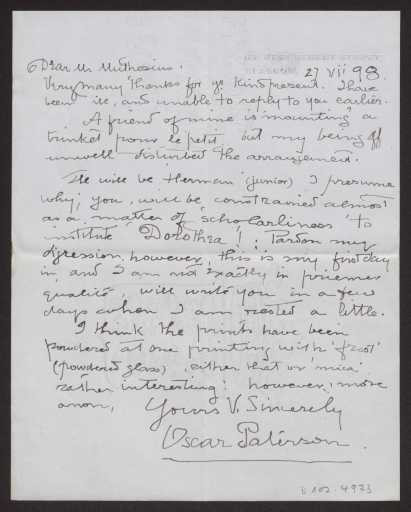 27 VII 98.
Dear Mr Muthesius.
Very many thanks for yr kind present. I have
been ill, and unable to reply to you earlier.
A friend of mine is mounting a
trinket pour le petit but my being
unwell disturbed the arrangement.
He will be Herman (junior) I presume
why, you, will be constrained almost
as a matter of 'scholarliness' to
institute 'Dorothea'! Pardon my
digression, however, this is my first day
in, and I am not exactly in premier
qualité, will write you in a few
days when I am rested a little.
I think the prints have been
powdered at one printing with 'frost'
(powdered glass) either that or 'mica'
rather interesting! however, more
anon,
Yours V. Sincerely
Oscar Paterson.
D 102-4923